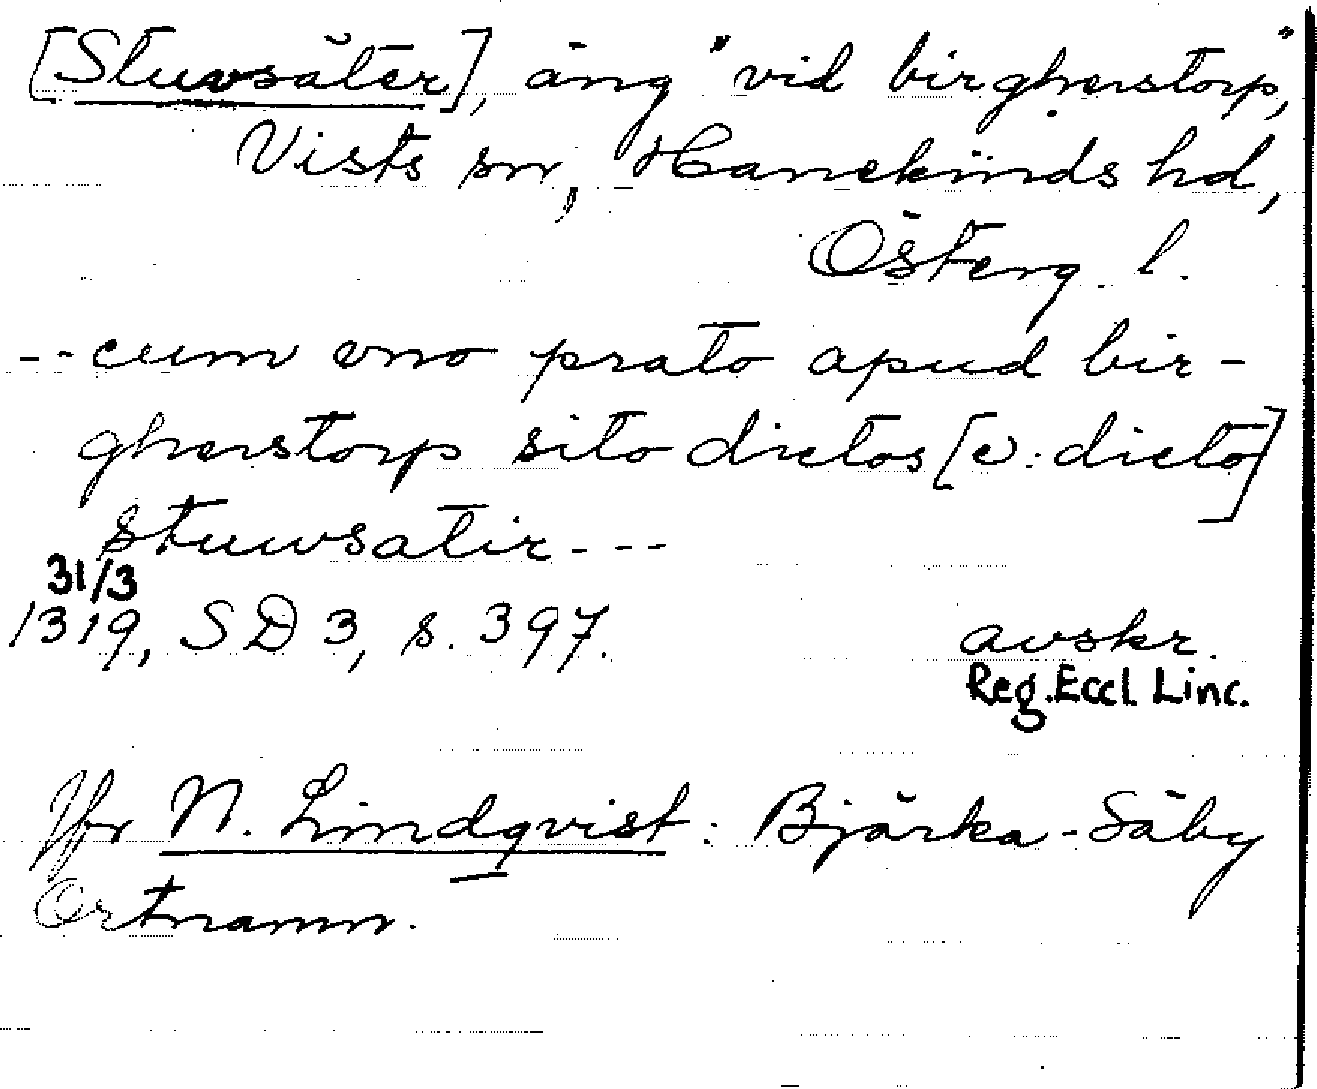 [Stuvsäter], äng "vid birgherstorp",
Vists sn, Hanekinds hd,
Österg. l.
-- cum vno prato apud bir-
gherstorp sito dictos [ɔ: dicto]
stuwsatir ---
31/3
1319, SD 3, s. 397.
avskr.
Reg. Eccl. Linc.
Jfr N. Lindqvist: Bjärka-Säby
Ortnamn.